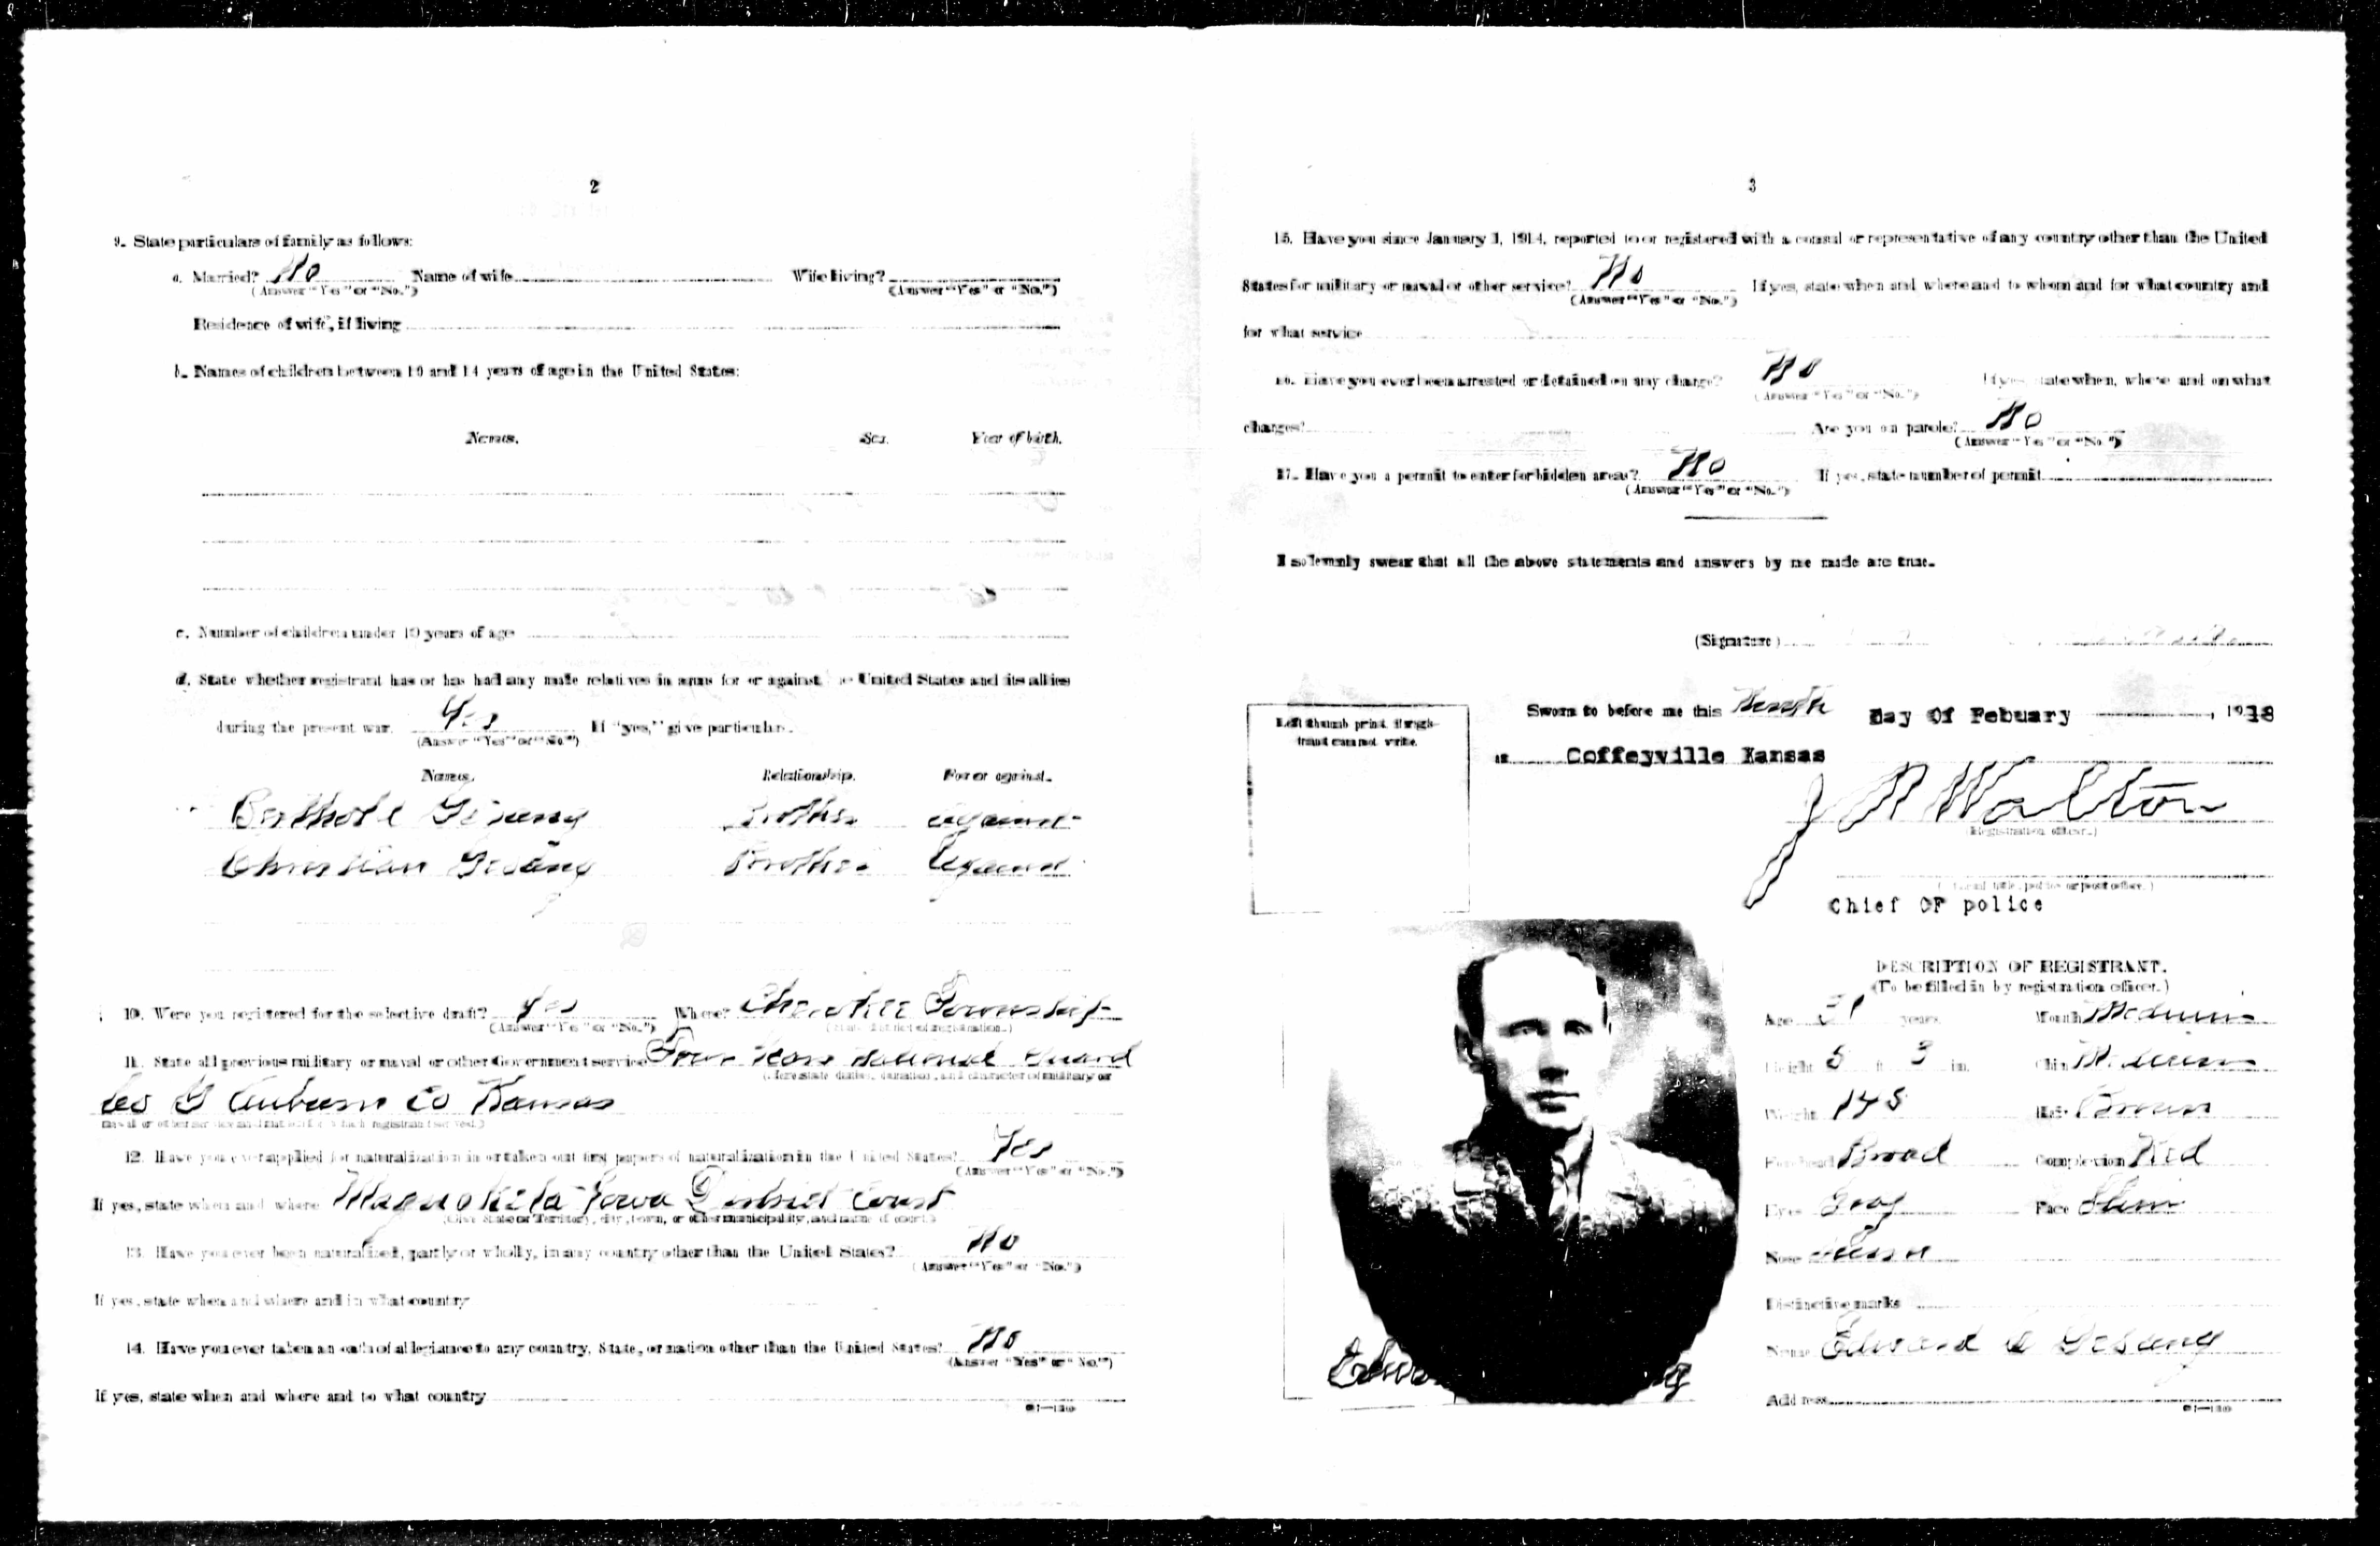 2
9. State particulars of family as follows:
a. Married? No Name of wife Wife living?
(Answer "Yes" or "No.") (Answer "Yes" or "No.")
Residence of wife, if living
b. Names of children between 10 and 14 years of age in the United States:
Names. Sex. Year of birth.
c. Number of children under 10 years of age
d. State whether registrant has or has had any male relatives in arms for or against United States and its allies
during the present war. Yes If "yes," give particulars.
(Answer "Yes" or "No")
Names. Relationship. For or against.
Gesang Brother against
Christian Gesang Brother against
10. Were you registered for the selective draft? Yes Where? Cherokee Township
(Answer "Yes" or "No.")
11. State all previous military or naval or other Government service National Guard
(Here state dates, duration, and character of military or
Co G Auburn Kansas
naval or other
12. Have you ever applied for naturalization in or taken out first papers of naturalization in the United States? Yes
(Answer "Yes" or "No.")
If yes, state when and where Maquoketa Iowa District Court
(Give State or Territory), city, town, or other municipality, and name of court.)
13. Have you ever been naturalized, partly or wholly, in any country other than the United States? No
(Answer "Yes" or "No.")
If yes, state when and where and in what country
14. Have you ever taken an oath of allegiance to any country, State, or nation other than the United States? No
(Answer "Yes" or "No.")
If yes, state when and where and to what country
3
15. Have you since January 1, 1914, reported to or registered with a consul or representative of any country other than the United
States for military or naval or other service? No If yes, state when and where and to whom and for what country and
(Answer "Yes" or "No.")
for what service
16. Have you ever been arrested or detained on any charge? No If yes, state when, where and on what
(Answer "Yes" or "No.")
charges? Are you on parole? No
(Answer "Yes" or "No.")
17. Have you a permit to enter forbidden areas? No If yes, state number of permit
(Answer "Yes" or "No.")
I solemnly swear that all the above statements and answers by me made are true.
(Signature)
Left thumb print if regis-
trant cannot write.
Sworn to before me this Day Of Pebuary
at Coffeyville Kansas
J R Walton
(Registration officer.)
Chief OF police
DESCRIPTION OF REGISTRANT.
(To be filled in by registration officer.)
Age 31 years. Mouth Medium
Height 5 ft 3 in. Chin Medium
Weight 145 Hair Brown
Forehead Broad Complexion Red
Eyes Gray Face Slim
Nose
Distinctive marks
Name Edward Gesang
Address